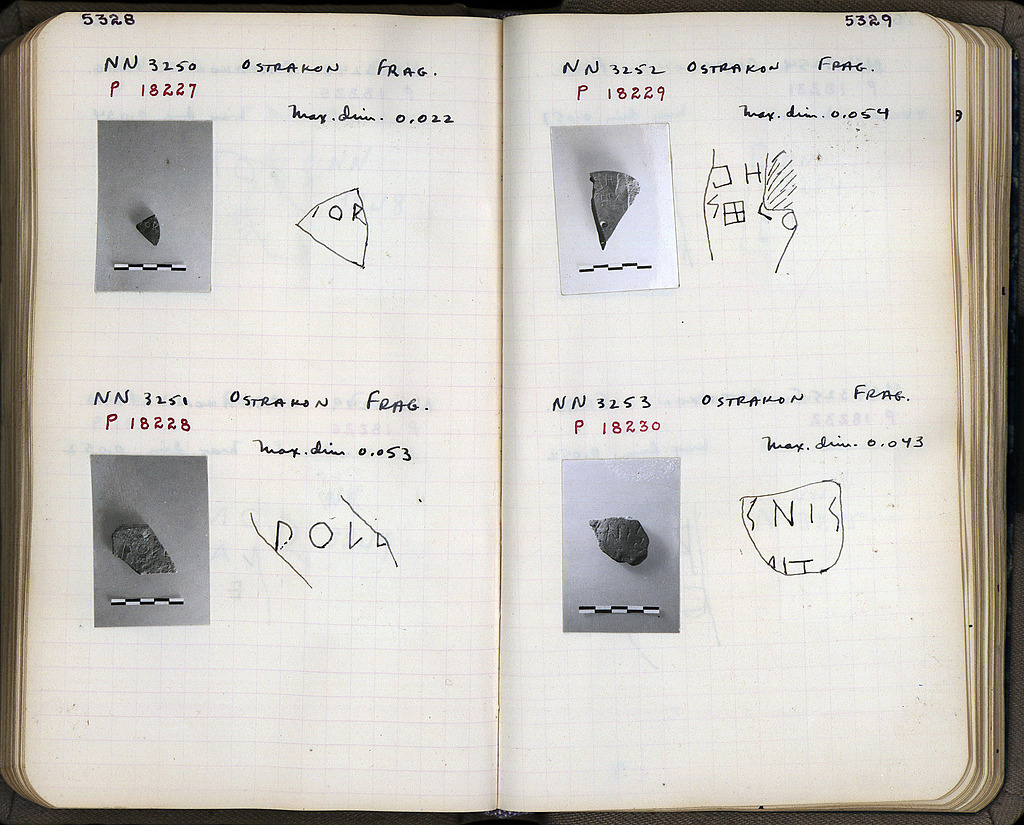 5328
NN 3250 OSTRAKON FRAG.
P 18227
Max. dim. 0.022
OR
NN 3251 OSTRAKON FRAG.
P 18228
Max. dim 0.053
5329
NN 3252 OSTRAKON FRAG.
P 18229
Max. dim. 0.054
H
NN 3253 OSTRAKON FRAG.
P 18230
Max. dim. 0.043
NI